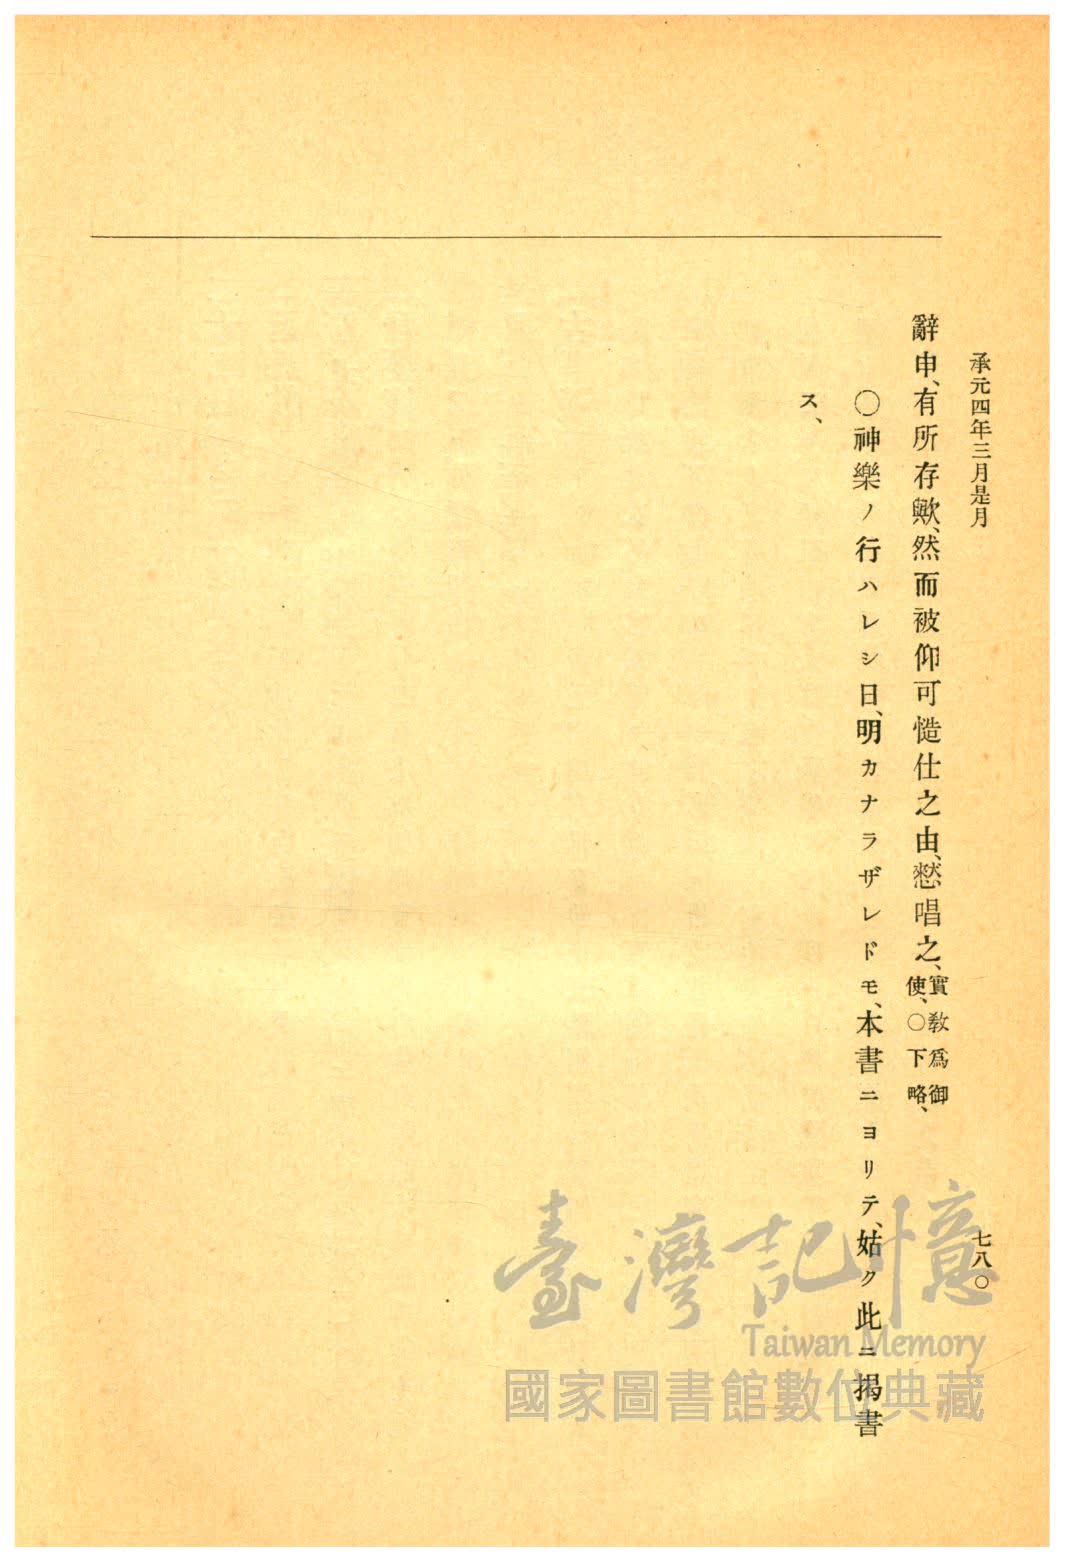 承元四年三月是月
七八〇
辭申、有所存歟、然而被仰可慥仕之由、憖唱之、實敎爲御使、〇下略、
〇神樂ノ行ハレシ日、明カナラザレドモ、本書ニヨリテ、姑ク此ニ揭書
ス、
臺灣記憶
Taiwan Memory
國家圖書館數位典藏